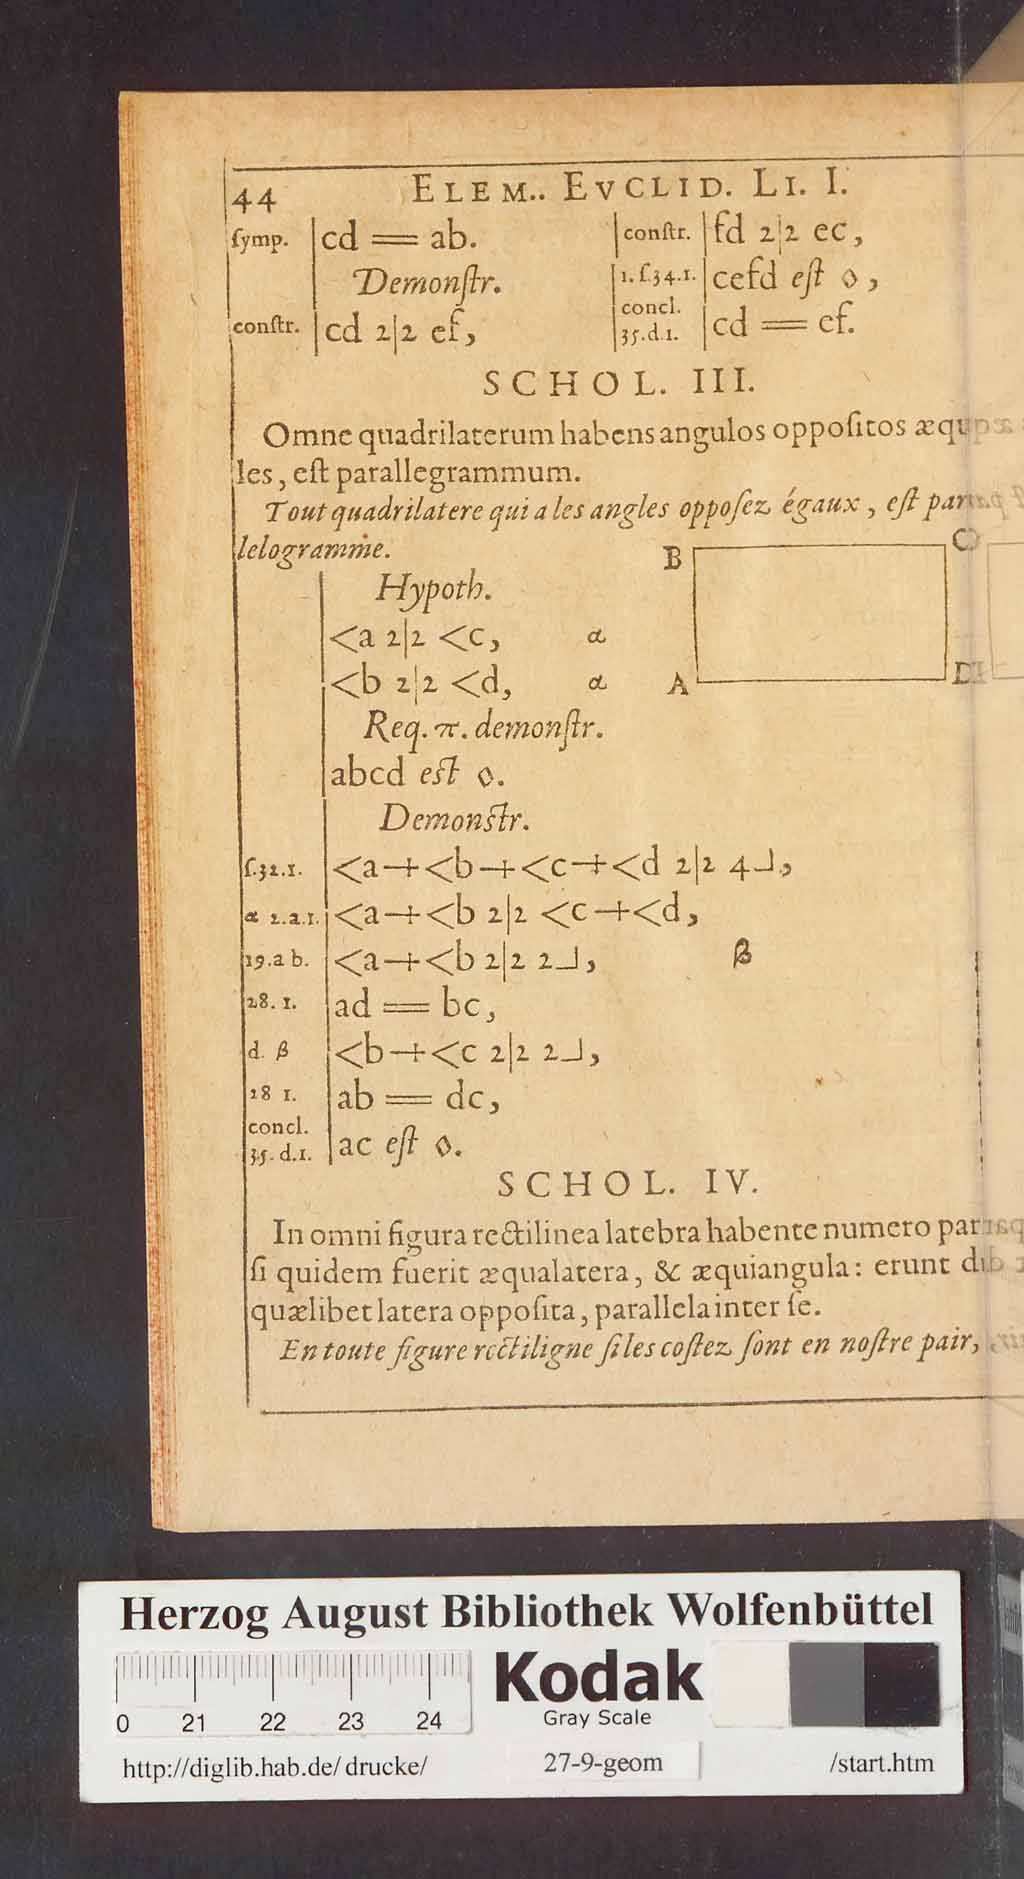 44 ELEM.. EVCLID. LI. I.
ſymp. cd = ab.
Demonſtr.
conſtr. cd 2|2 ef,
conſtr. fd 2|2 ec,
1. ſ.34.1. cefd eſt ◊,
concl.
35.d.1. cd = ef.
SCHOL. III.
Omne quadrilaterum habens angulos oppoſitos æqu
les, eſt parallegrammum.
Tout quadrilatere qui a les angles oppoſez égaux, eſt
lelogramme.
B C
A D
Hypoth.
<a 2|2 <c, α
<b 2|2 <d, α
Req. π. demonſtr.
abcd eſt ◊.
Demonſtr.
ſ.32.1. <a+<b+<c+<d 2|2 4⅃,
α 2.a.1. <a+<b 2|2 <c+<d,
19.a b. <a+<b 2|2 2⅃, β
28. 1. ad = bc,
d. β <b+<c 2|2 2⅃,
28 1. ab = dc,
concl.
35. d.1. ac eſt ◊.
SCHOL. IV.
In omni figura rectilinea latebra habente numero
ſi quidem fuerit æqualatera, & æquiangula: erunt
quælibet latera oppoſita, parallela inter ſe.
En toute figure rectiligne ſi les coſtez ſont en noſtre pair,
Herzog August Bibliothek Wolfenbüttel
0 21 22 23 24
Kodak
Gray Scale
http://diglib.hab.de/drucke/ 27-9-geom /start.htm